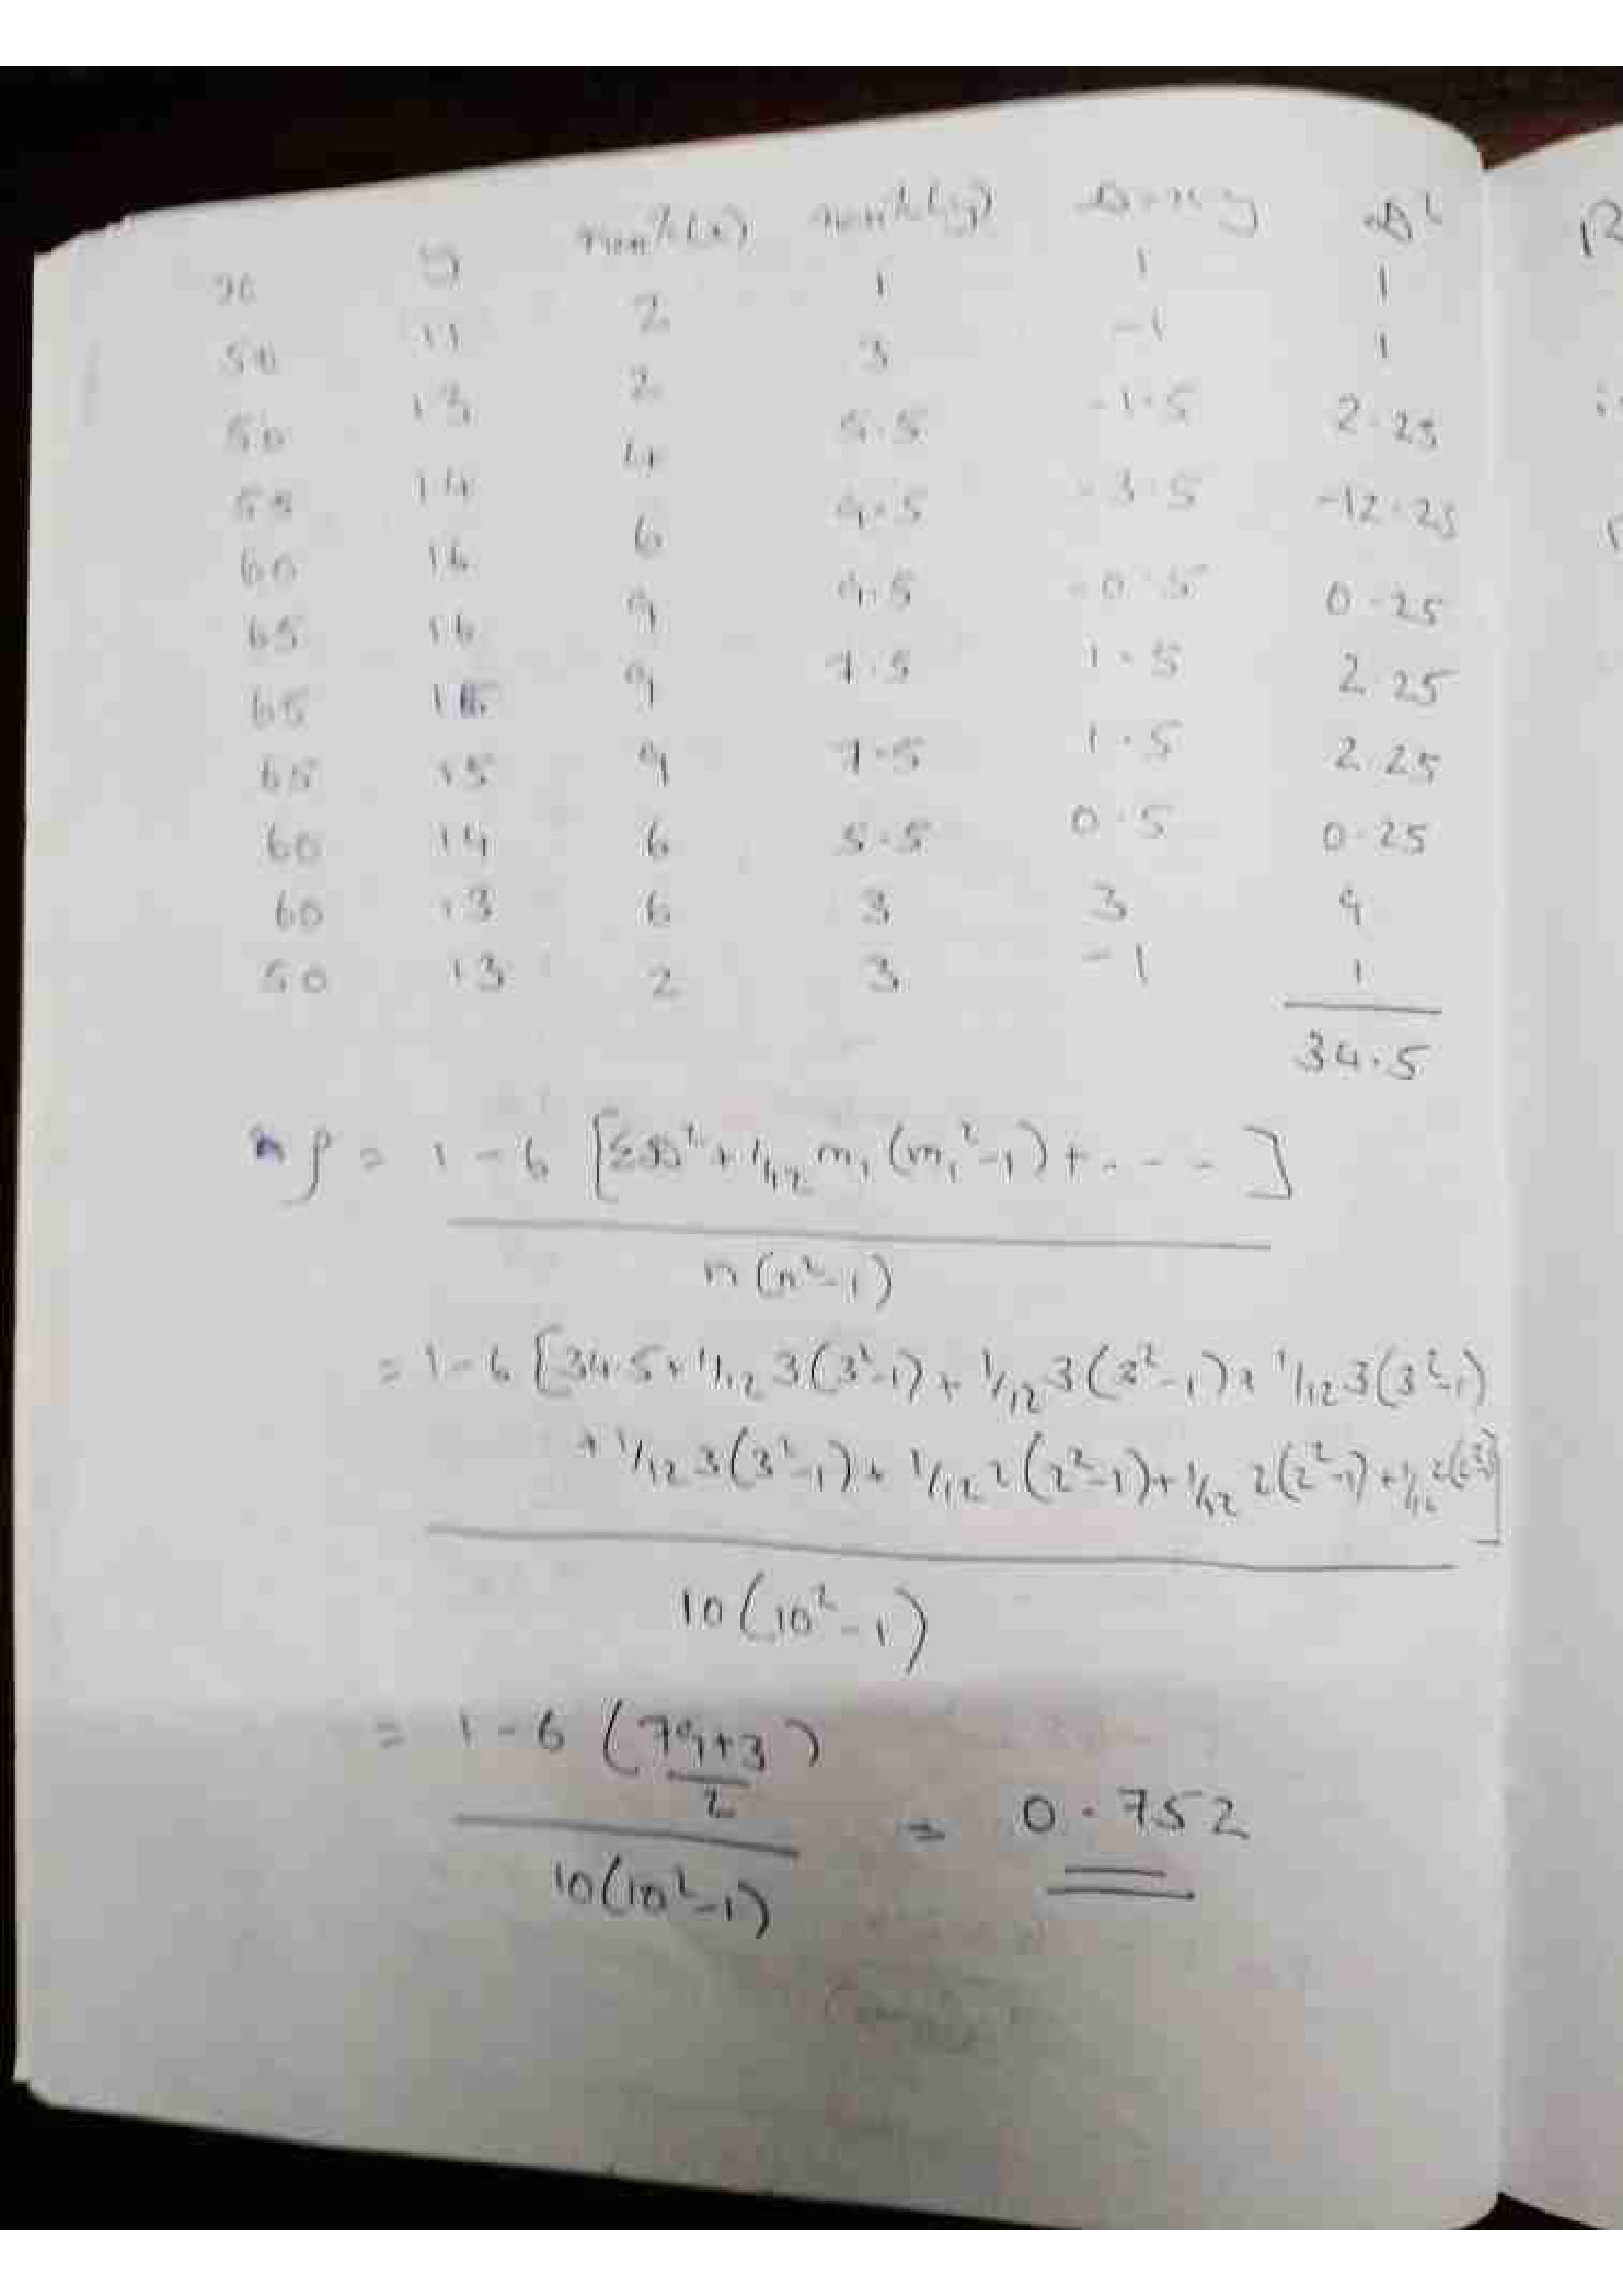 x y rank(x) rank(y) D=x-y D²
50 11 2 1 1 1
50 13 2 3 -1 1
55 14 4 5.5 -1.5 2.25
60 16 6 9.5 -3.5 -12.25
65 16 9 9.5 -0.5 0.25
65 15 9 7.5 1.5 2.25
65 15 9 7.5 1.5 2.25
60 14 6 5.5 0.5 0.25
60 13 6 3 3 9
50 13 2 3 -1 1
34.5
ρ = 1 - 6 [ΣD² + 1/12 m₁(m₁²-1) + - - - ]
n(n²-1)
= 1 - 6 [34.5 + 1/12 3(3²-1) + 1/12 3(3²-1) + 1/12 3(3²-1)
+ 1/12 3(3²-1) + 1/12 2(2²-1) + 1/12 2(2²-1) + 1/12 2(2²-1)]
10(10²-1)
= 1 - 6 (79+3)
2
10(10²-1)
= 0.752